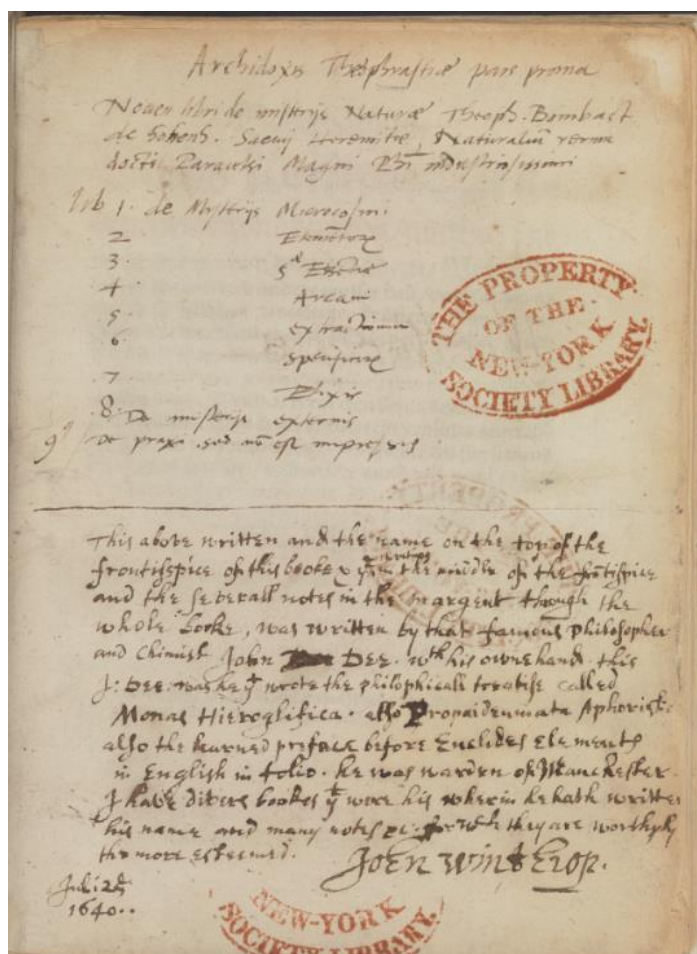 Archidoxis Theophrastiae pars prima
Novem libri de misterijs Naturae Theoph. Bombast
de Hohenh. Suevij Heremitae, Naturaliū rerum
docti Paracelsi Magni industriosissimi
Lib 1. de Mysterijs Microcosmi
2
3
5ae Essentiae
4 Arcani
5. extractionum
6
7 Elixir
8. De misterijs externis
9 De praxi. sed nō est impressus
THE PROPERTY
OF THE
NEW-YORK
SOCIETY LIBRARY.
This above written and the name on the top of the
frontispice of this booke & in the middle of the frōtispice
and the severall notes in the margent through the
whole booke, was written by that famous philosopher
and Chimist John Dee. wth his owne hand. this
J: Dee. was he yt wrote the philosphicall treatise called
Monas Hieroglifica. also Propaideumata Aphoristic
also the learned preface before Euclides Elements
in English in folio. he was warden of Manchester.
I have divers bookes yt were his wherin he hath written
his name and many notes for wch they are worthyly
the more esteemed.
John Winthrop.
Juli
1640..
NEW-YORK
SOCIETY LIBRARY.